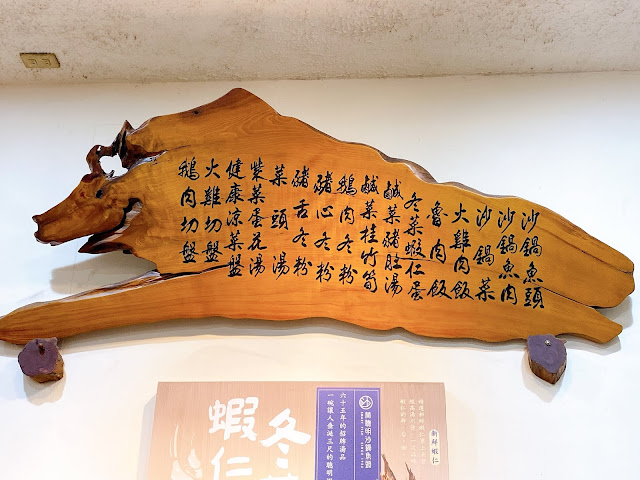 沙鍋魚頭
沙鍋魚肉
沙鍋菜
火雞肉飯
魯肉飯
冬菜蝦仁蛋
鹹菜豬肚湯
鹹菜桂竹筍
鵝肉冬粉
豬心冬粉
豬舌冬粉
菜頭湯
紫菜蛋花湯
健康涼菜盤
火雞切盤
鵝肉切盤
新鮮蝦仁
聰明沙鍋魚頭
六十五年的招牌湯品
一碗讓人垂涎三尺的聰明
冬
蝦仁